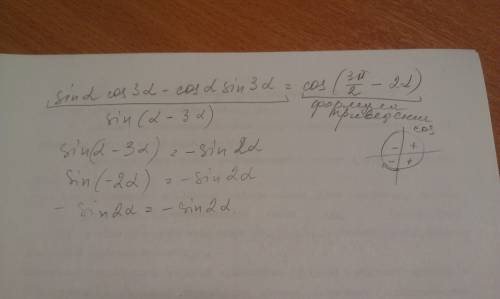 sinα cos3α - cosα sin3α = cos(3π/2 - 2α)
sin(α - 3α)
формула
приведения
cos
- +
- +
sin(α - 3α) = - sin2α
sin(-2α) = - sin2α
- sin2α = - sin2α.